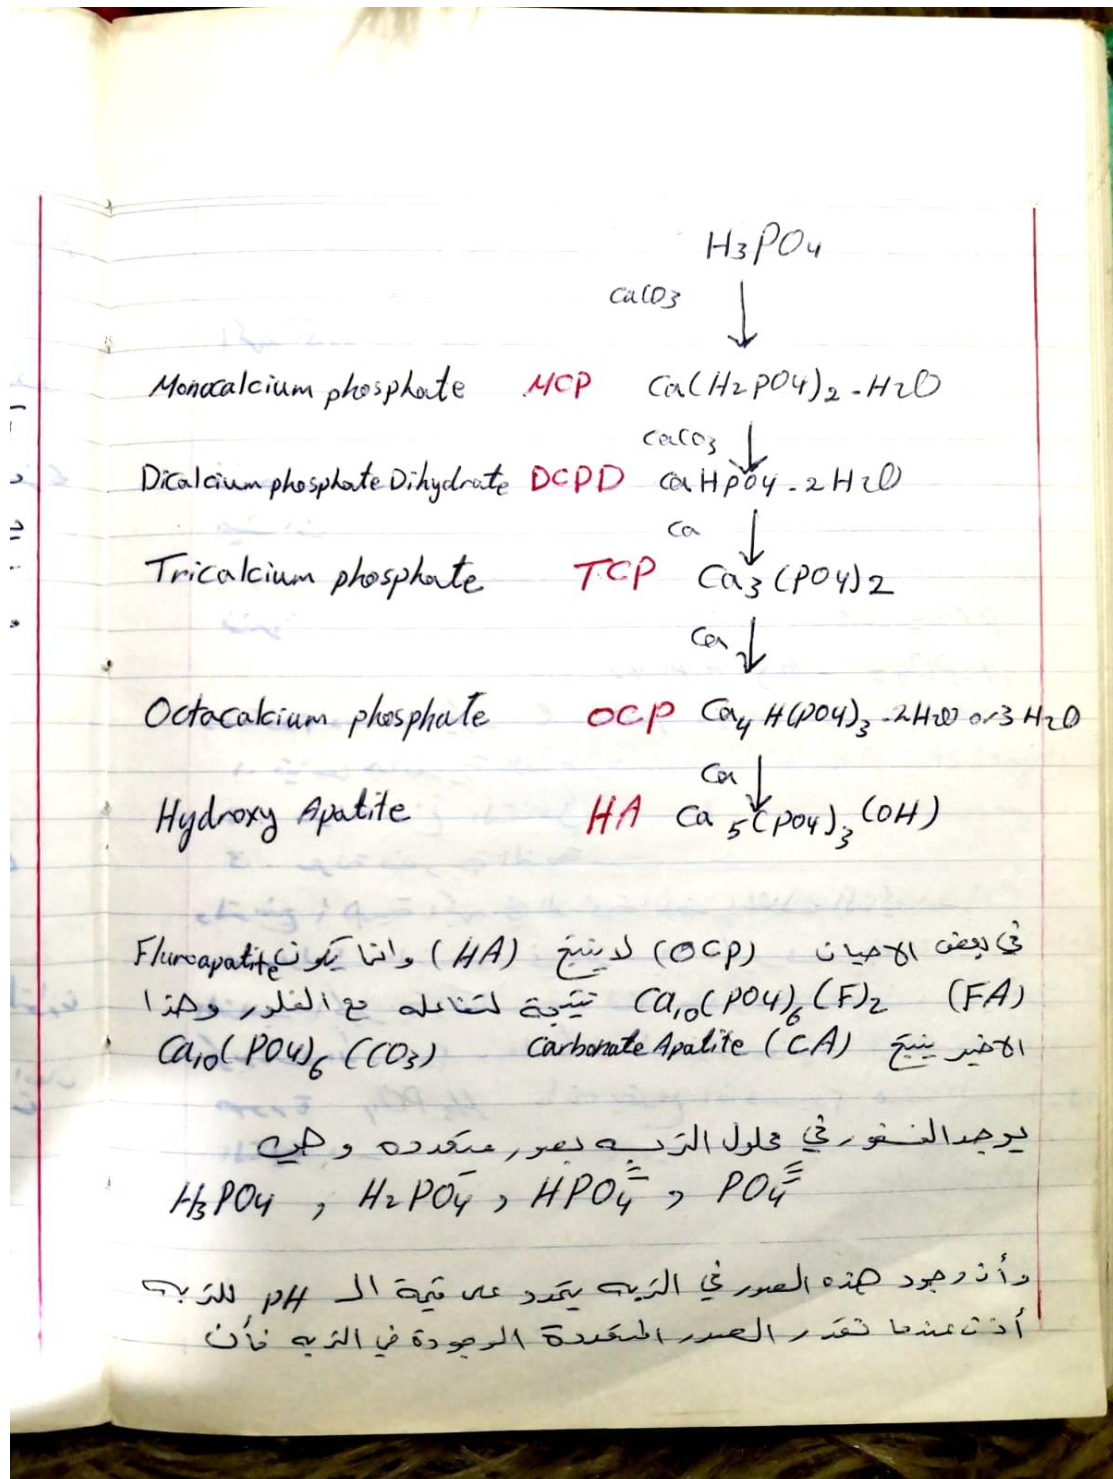 H3PO4
CaCO3 ↓
Monocalcium phosphate MCP Ca(H2PO4)2 - H2O
CaCO3 ↓
Dicalcium phosphate Dihydrate DCPD CaHPO4 - 2H2O
Ca ↓
Tricalcium phosphate TCP Ca3(PO4)2
Ca ↓
Octacalcium phosphate OCP Ca4H(PO4)3 - 2H2O or 3H2O
Ca ↓
Hydroxy Apatite HA Ca5(PO4)3(OH)
في بعض الاحيان (OCP) لا ينتج (HA) وانما يكون Fluroapatite
(FA) Ca10(PO4)6(F)2 نتيجة لتفاعله مع الفلور وهذا
الاخير ينتج Carbonate Apatite (CA) Ca10(PO4)6(CO3)
يوجد الفسفور في محلول التربه بصور متعدده وهي
H3PO4 , H2PO4⁻ , HPO4⁼ , PO4≡
وأن وجود هذه الصور في التربه يتحدد على قيمة الـ pH للتربه
عندما تقدر الصور المتعددة الموجودة في التربه فأن